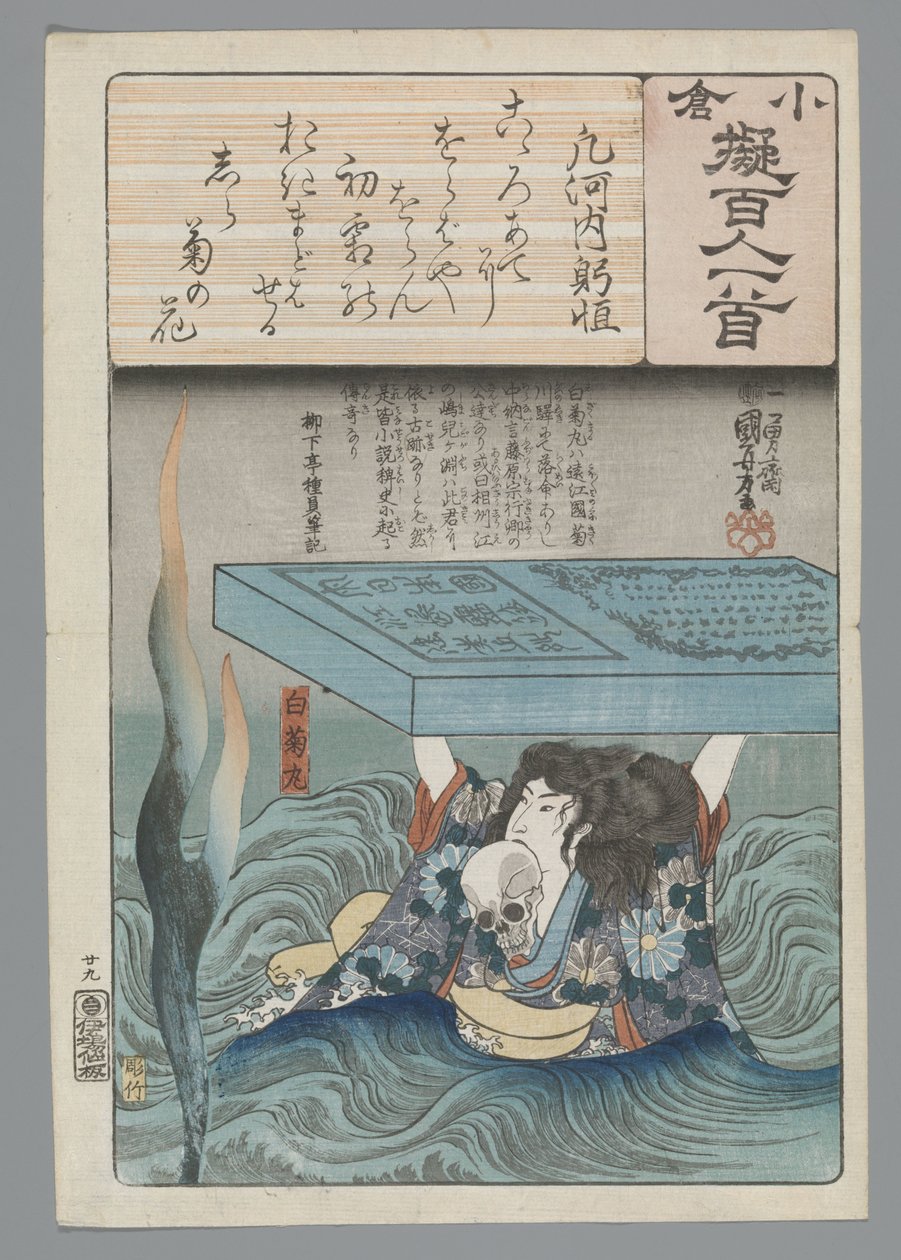 小倉
擬百人一首
凡河内躬恒
こゝろあてに
をらばや
をらん
初霜の
おきまどは
せる
しら
菊の
花
一勇齋
國芳画
白菊丸ハ遠江國菊
川驛にて落命ありし
中納言藤原宗行卿の
公達なり或曰相州江
の嶋兒ケ淵ハ此君に
依る古跡なりとぞ然
是皆小説稗史に起る
傳奇なり
柳下亭種員筆記
白菊丸
廿九
伊場仙板
彫竹